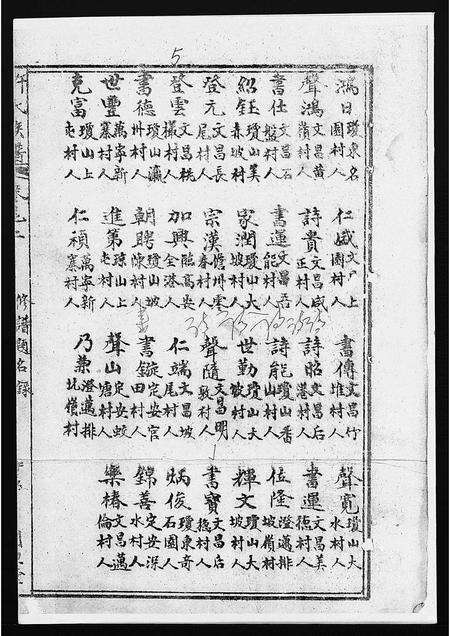 5
鴻日 瓊東名園村人 仁娍 上園村人 書傳 文昌竹堆村人 聲寬 瓊山大水村人
聲鴻 文昌黄隋村人 詩貴 文昌咸正村人 詩昭 文昌后港村人 書運 文昌美德村人
書仕 文昌石盤村人 書蓮 文昌能村人 詩能 瓊山番山村人 位隆 澄邁排坡嶺村
紹鈺 瓊山美赤坡村人 家潤 瓊山大坡村人 世勤 瓊山大敏村人 輝文 瓊山大坡村人
登元 文昌長尾村人 宗漢 儋州雲春村人 聲隨 文昌明敦村人 書寶 文昌店德村人
登雲 文昌秩村人 加興 臨高英全港人 仁端 文昌坡尾村人 炳俊 瓊東奇石園人
書德 瓊山瀛卅村人 朝聘 瓊山坡陳村人 書錠 定安官田村人 錦善 定安深水村人
世豐 萬寧新寨村人 進第 瓊山上屯村人 聲山 定安蛟塘村人 樂椿 文昌邁倫村人
克富 瓊山上屯村人 仁禎 萬寧新寨村人 乃葉 澄邁排坑嶺村
許氏族譜 卷之二 修譜題名錄